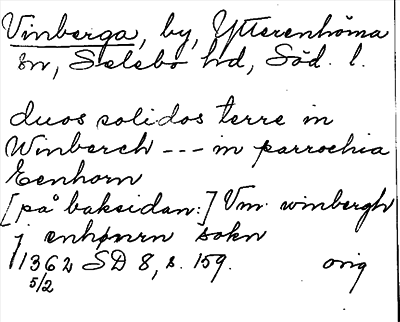 Vinberga, by, Ytterenhörna
sn, Selebo hd, Söd. l.
duos solidos terre in
Winberch --- in parrochia
Eenhorn
[på baksidan:] Vm winbergh
j enhørnn sokn
1362 SD 8, s. 159. orig
5/2